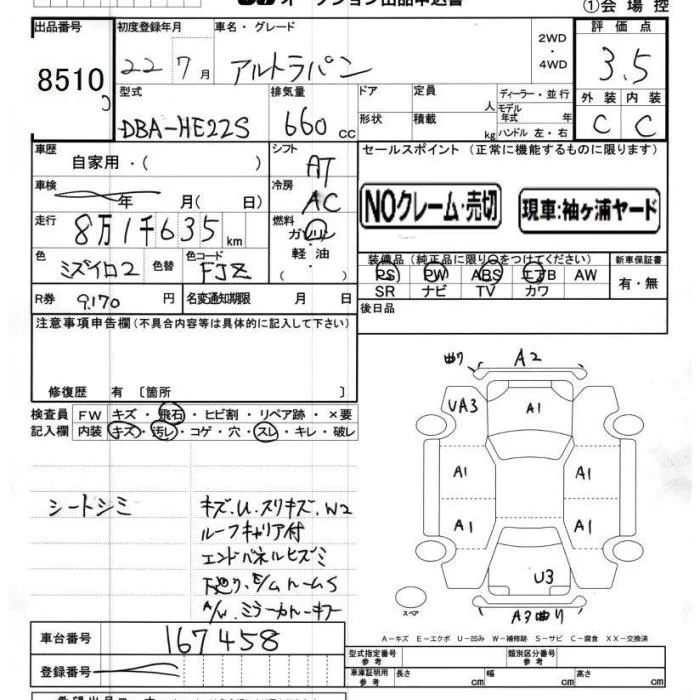 オークション出品申込書
①会場控
出品番号 初度登録年月 車名・グレード 2WD ・ 4WD 評価点
8510 22 7月 アルトラパン 3.5
型式 排気量 ドア 定員 人 ディーラー・並行 外装 内装
DBA-HE22S 660cc 形状 積載 kg モデル年式 年 ハンドル 左・右 C C
車歴 自家用・( ) シフト AT セールスポイント (正常に機能するものに限ります)
車検 年 月( 日) 冷房 AC NOクレーム・売切 現車:袖ヶ浦ヤード
走行 8万1千635km 燃料 ガソリン
色 ミズイロ2 色替 色コード FJZ 軽油・( )
装備品(純正品に限り○をつけてください) 新車保証書
PS PW ABS エアB AW 有・無
SR ナビ TV カワ
R券 9,170円 名変通知期限 月 日 後日品
注意事項申告欄(不具合内容等は具体的に記入して下さい)
修復歴 有 〔箇所 〕
検査員 FW キズ・飛石・ヒビ割・リペア跡・×要
記入欄 内装 キズ・汚レ・コゲ・穴・スレ・キレ・破レ
シートシミ
キズ.U.スリキズ.W2
ルーフキャリア付
エンドパネルヒズミ
下廻り
曲り A2
UA3 A1
A1 A1
A1 A1
U3
スペア A3曲り
A-キズ E-エクボ U-凹み W-補修跡 S-サビ C-腐食 XX-交換済
車台番号 167458
登録番号
型式指定番号 参考 類別区分番号 参考
車庫証明用 参考 長さ cm 幅 cm 高さ cm